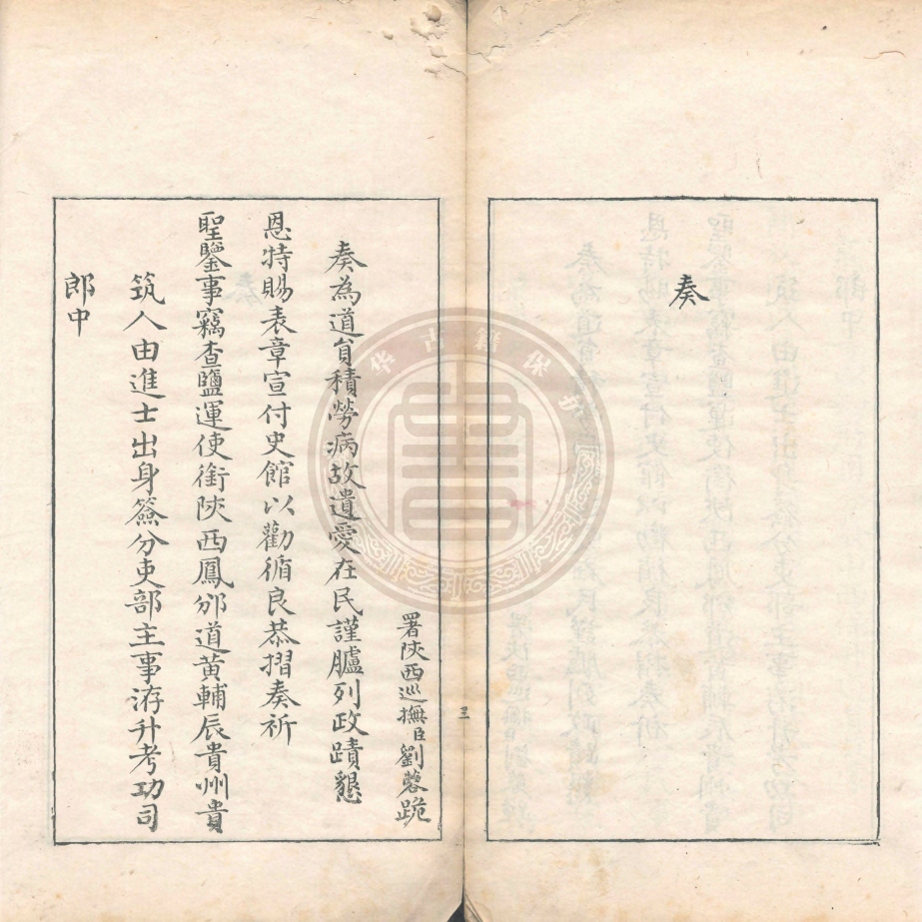 奏
署陝西巡撫臣劉蓉跪
三
奏為道員積勞病故遺愛在民謹臚列政蹟懇
恩特賜表章宣付史館以勸循良恭摺奏祈
聖鑒事竊查鹽運使銜陝西鳳邠道黃輔辰貴州貴
筑人由進士出身籤分吏部主事洊升考功司
郎中
華古籍保護